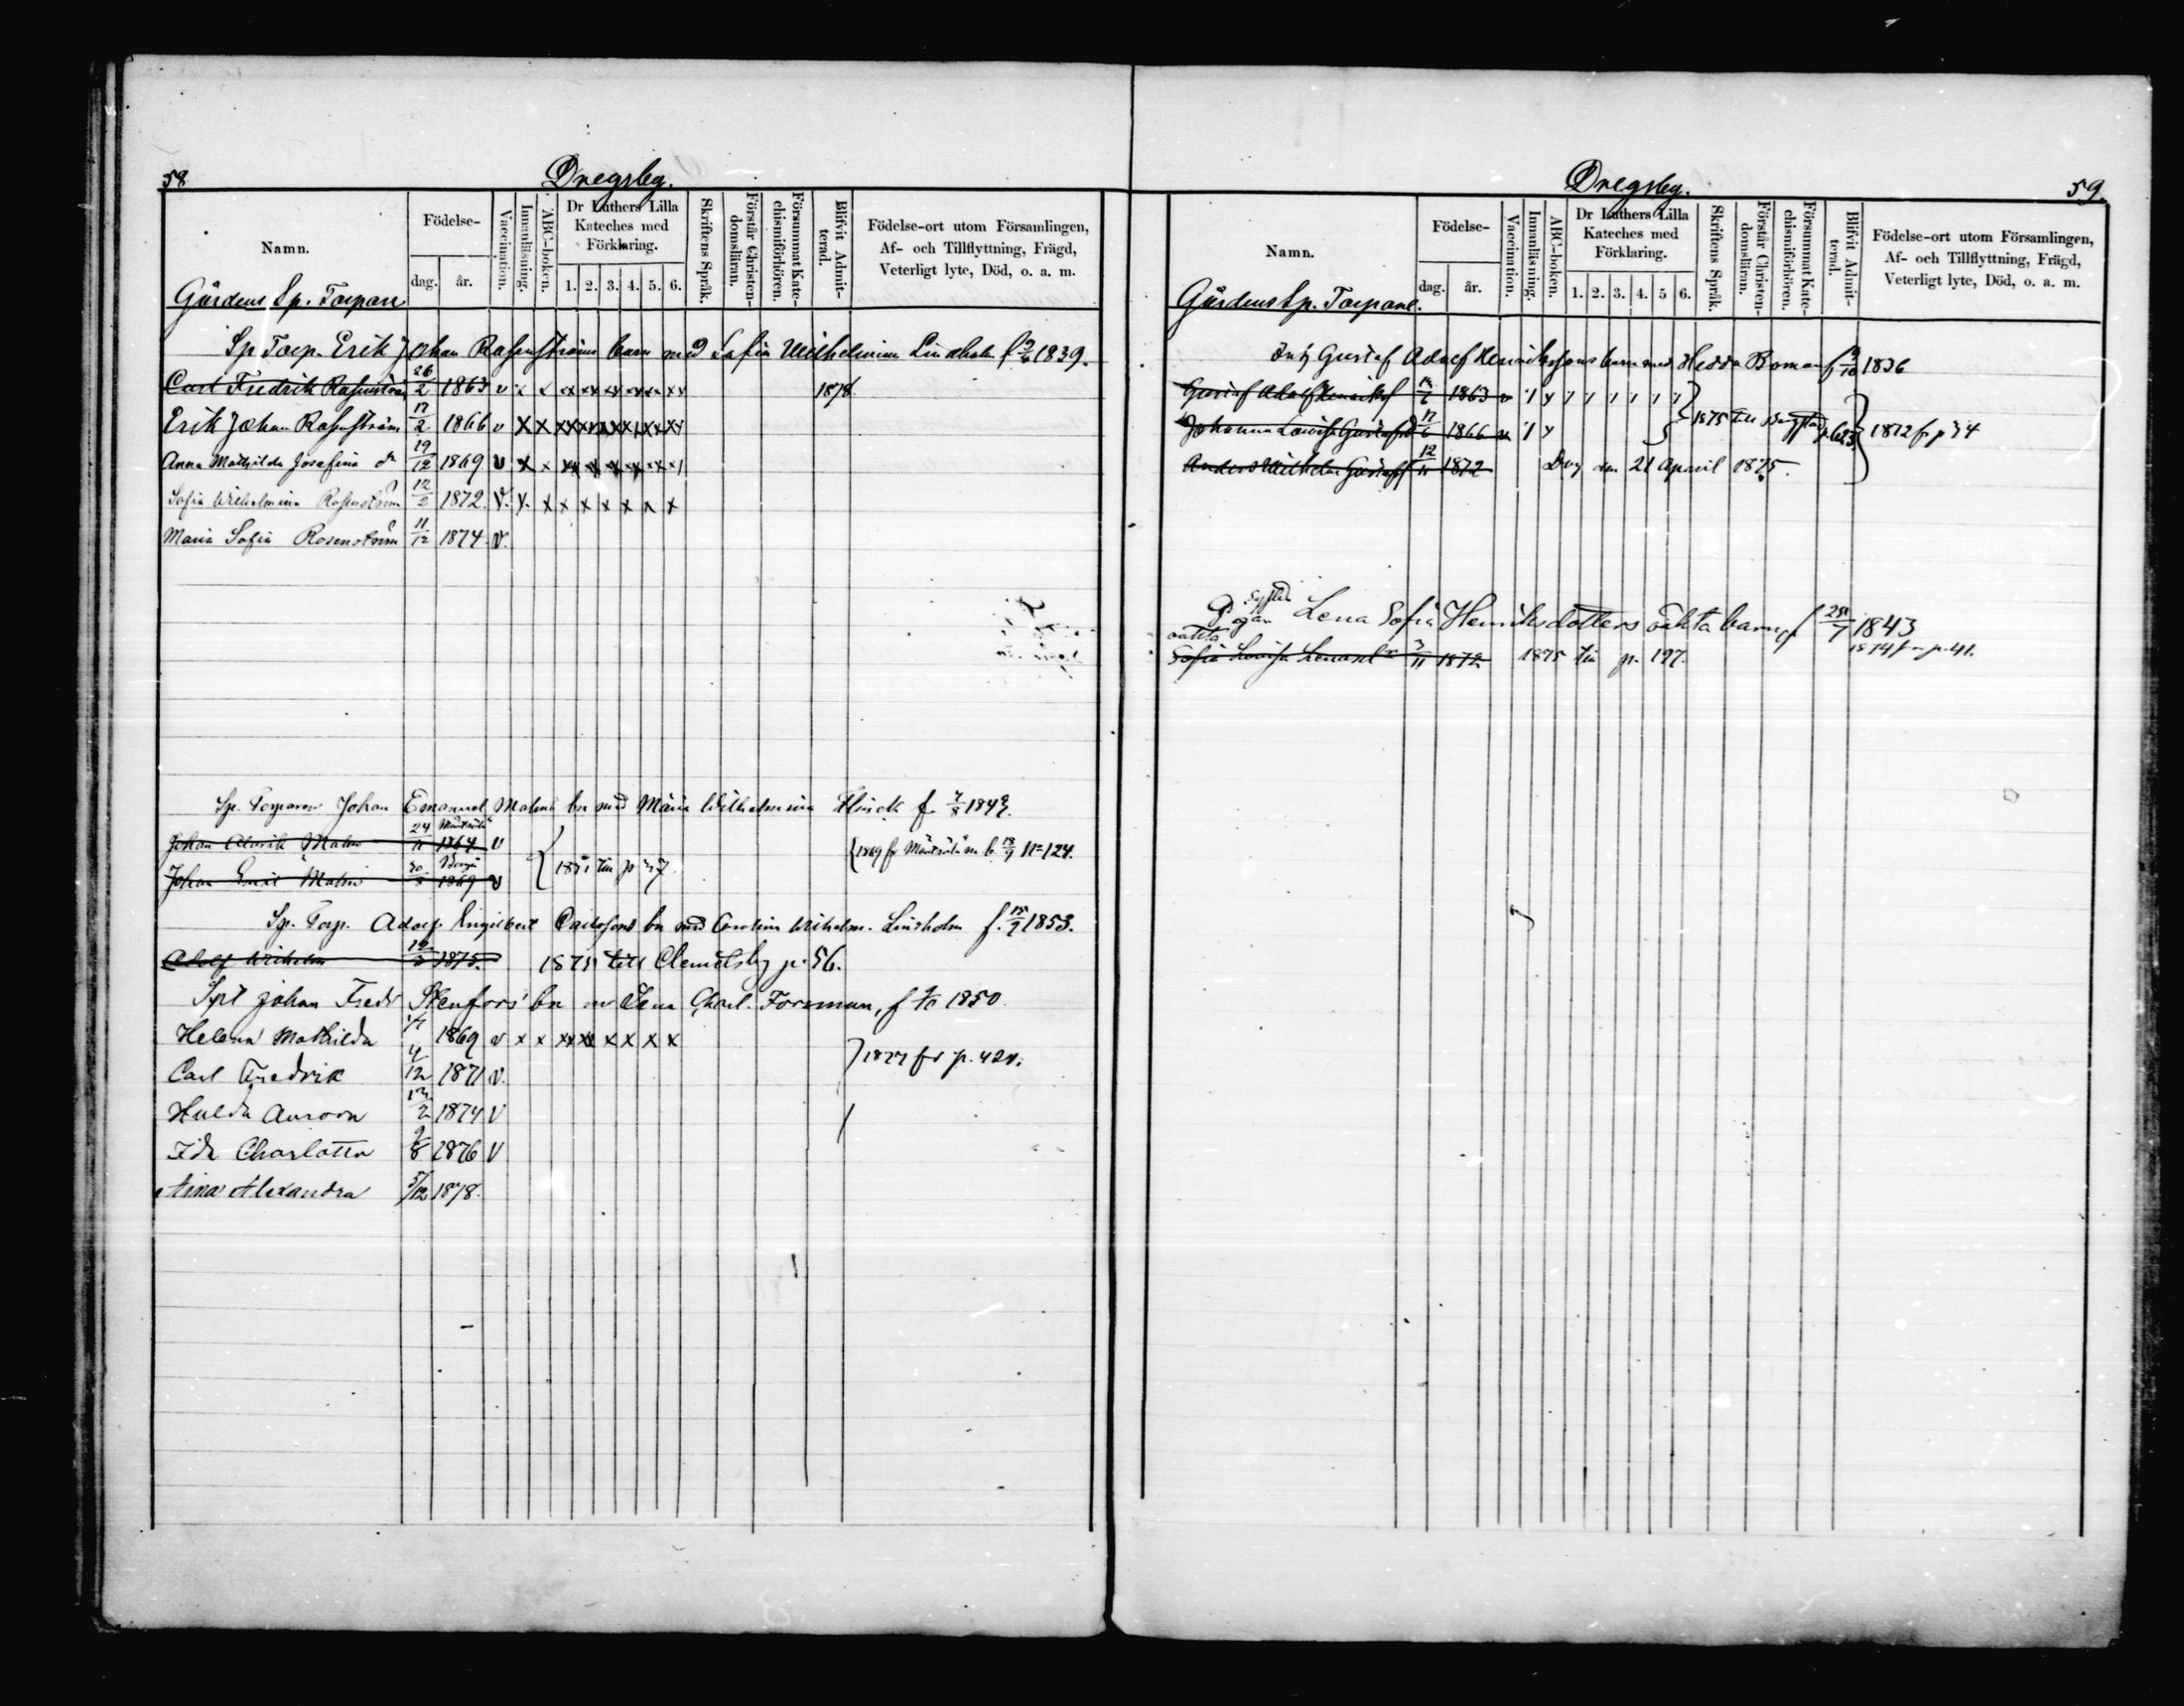 58
Dregsby.
Namn.
Födelse-
dag.
år.
Vaccination.
Innanläsning.
ABC-boken.
Dr Luthers Lilla Kateches med Förklaring.
1. 2. 3. 4. 5. 6.
Skriftens Språk.
Förstår Christen-domsläran.
Försummat Kate-chismiförhören.
Blifvit Admit-terad.
Födelse-ort utom Församlingen,
Af- och Tillflyttning, Frägd,
Veterligt lyte, Död, o. a. m.
Gårdens Sp. Torpare
Sp. Torp. Erik Johan Rosenströms barn med Sofia Wilhelmina Lindholm f 1839.
Carl Fredrik Rosenström 26/2 1863 v x x xx xx xx xx xx xx 1878
Erik Johan Rosenström 17/2 1866 v x x xx xx xx xx xx xx
Anna Mathilda Josefina 19/12 1869 v x x
Sofia Wilhelmina Rosenström 12/2 1872. v. x. x x x x x x x
Maria Sofia Rosenström 11/12 1874. v.
Sp. Torparen Johan Emanuel Malms bn med Maria Wilhelmina Flinck f. 7/8 1842.
Johan Alarik Malm 24/11 1864 v
Johan Emil Malm 30/8 1869 v
{1869 fr Mäntsälä m. b. 18/9 N=124.
Sp. Torp. Adolf Engelbert Carlssons bn med Carolina Wilhelm. Lindholm f. 15/9 1853.
Adolf Wilhelm 19/2 1875. 1875 till Clemetsby p. 56.
Spt Johan Fredr Stenfors' bn m Lena Charl. Forsman, f 9/10 1850.
Helena Mathilda 1869 v x x xx xx x x x x
Carl Fredrik 4/12 1871 v.
} 1877 fr p. 428.
Hulda Aurora 13/2 1874 v
Ida Charlotta 9/8 1876 v
Aina Alexandra 5/12 1878.
Dregsby.
59.
Namn.
Födelse-
dag.
år.
Vaccination.
Innanläsning.
ABC-boken.
Dr Luthers Lilla Kateches med Förklaring.
1. 2. 3. 4. 5 6.
Skriftens Språk.
Förstår Christen-domsläran.
Försummat Kate-chismiförhören.
Blifvit Admit-terad.
Födelse-ort utom Församlingen,
Af- och Tillflyttning, Frägd,
Veterligt lyte, Död, o. a. m.
Gårdens Sp. Torpare.
Gustaf Adolf Henrikssons barn med Hedda Boman f 9/10 1836
Gustaf Adolf Henriksson 1863 v
Johanna Lovisa Gustafsd 17/6 1866 v
} 1875 till p. 623
} 1872 fr p 34
Anders Wilhelm Gustafs 12/11 1872 Dog den 21 April 1875.
Pigan Lena Sofia Henriksdotters oäkta barn f 25/7 1843
1874 fr p. 41.
oäkta
Sofia Lovisa Lenasd 3/11 1872 1875 till p. 197.